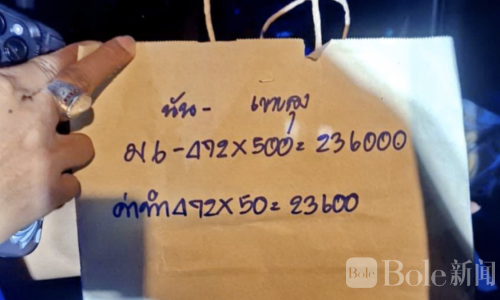 นัน - เขาสูง
ม 6 - 472 X 500 = 236000
ค่าทำ 472 X 50 = 23600
Bole Bole新闻